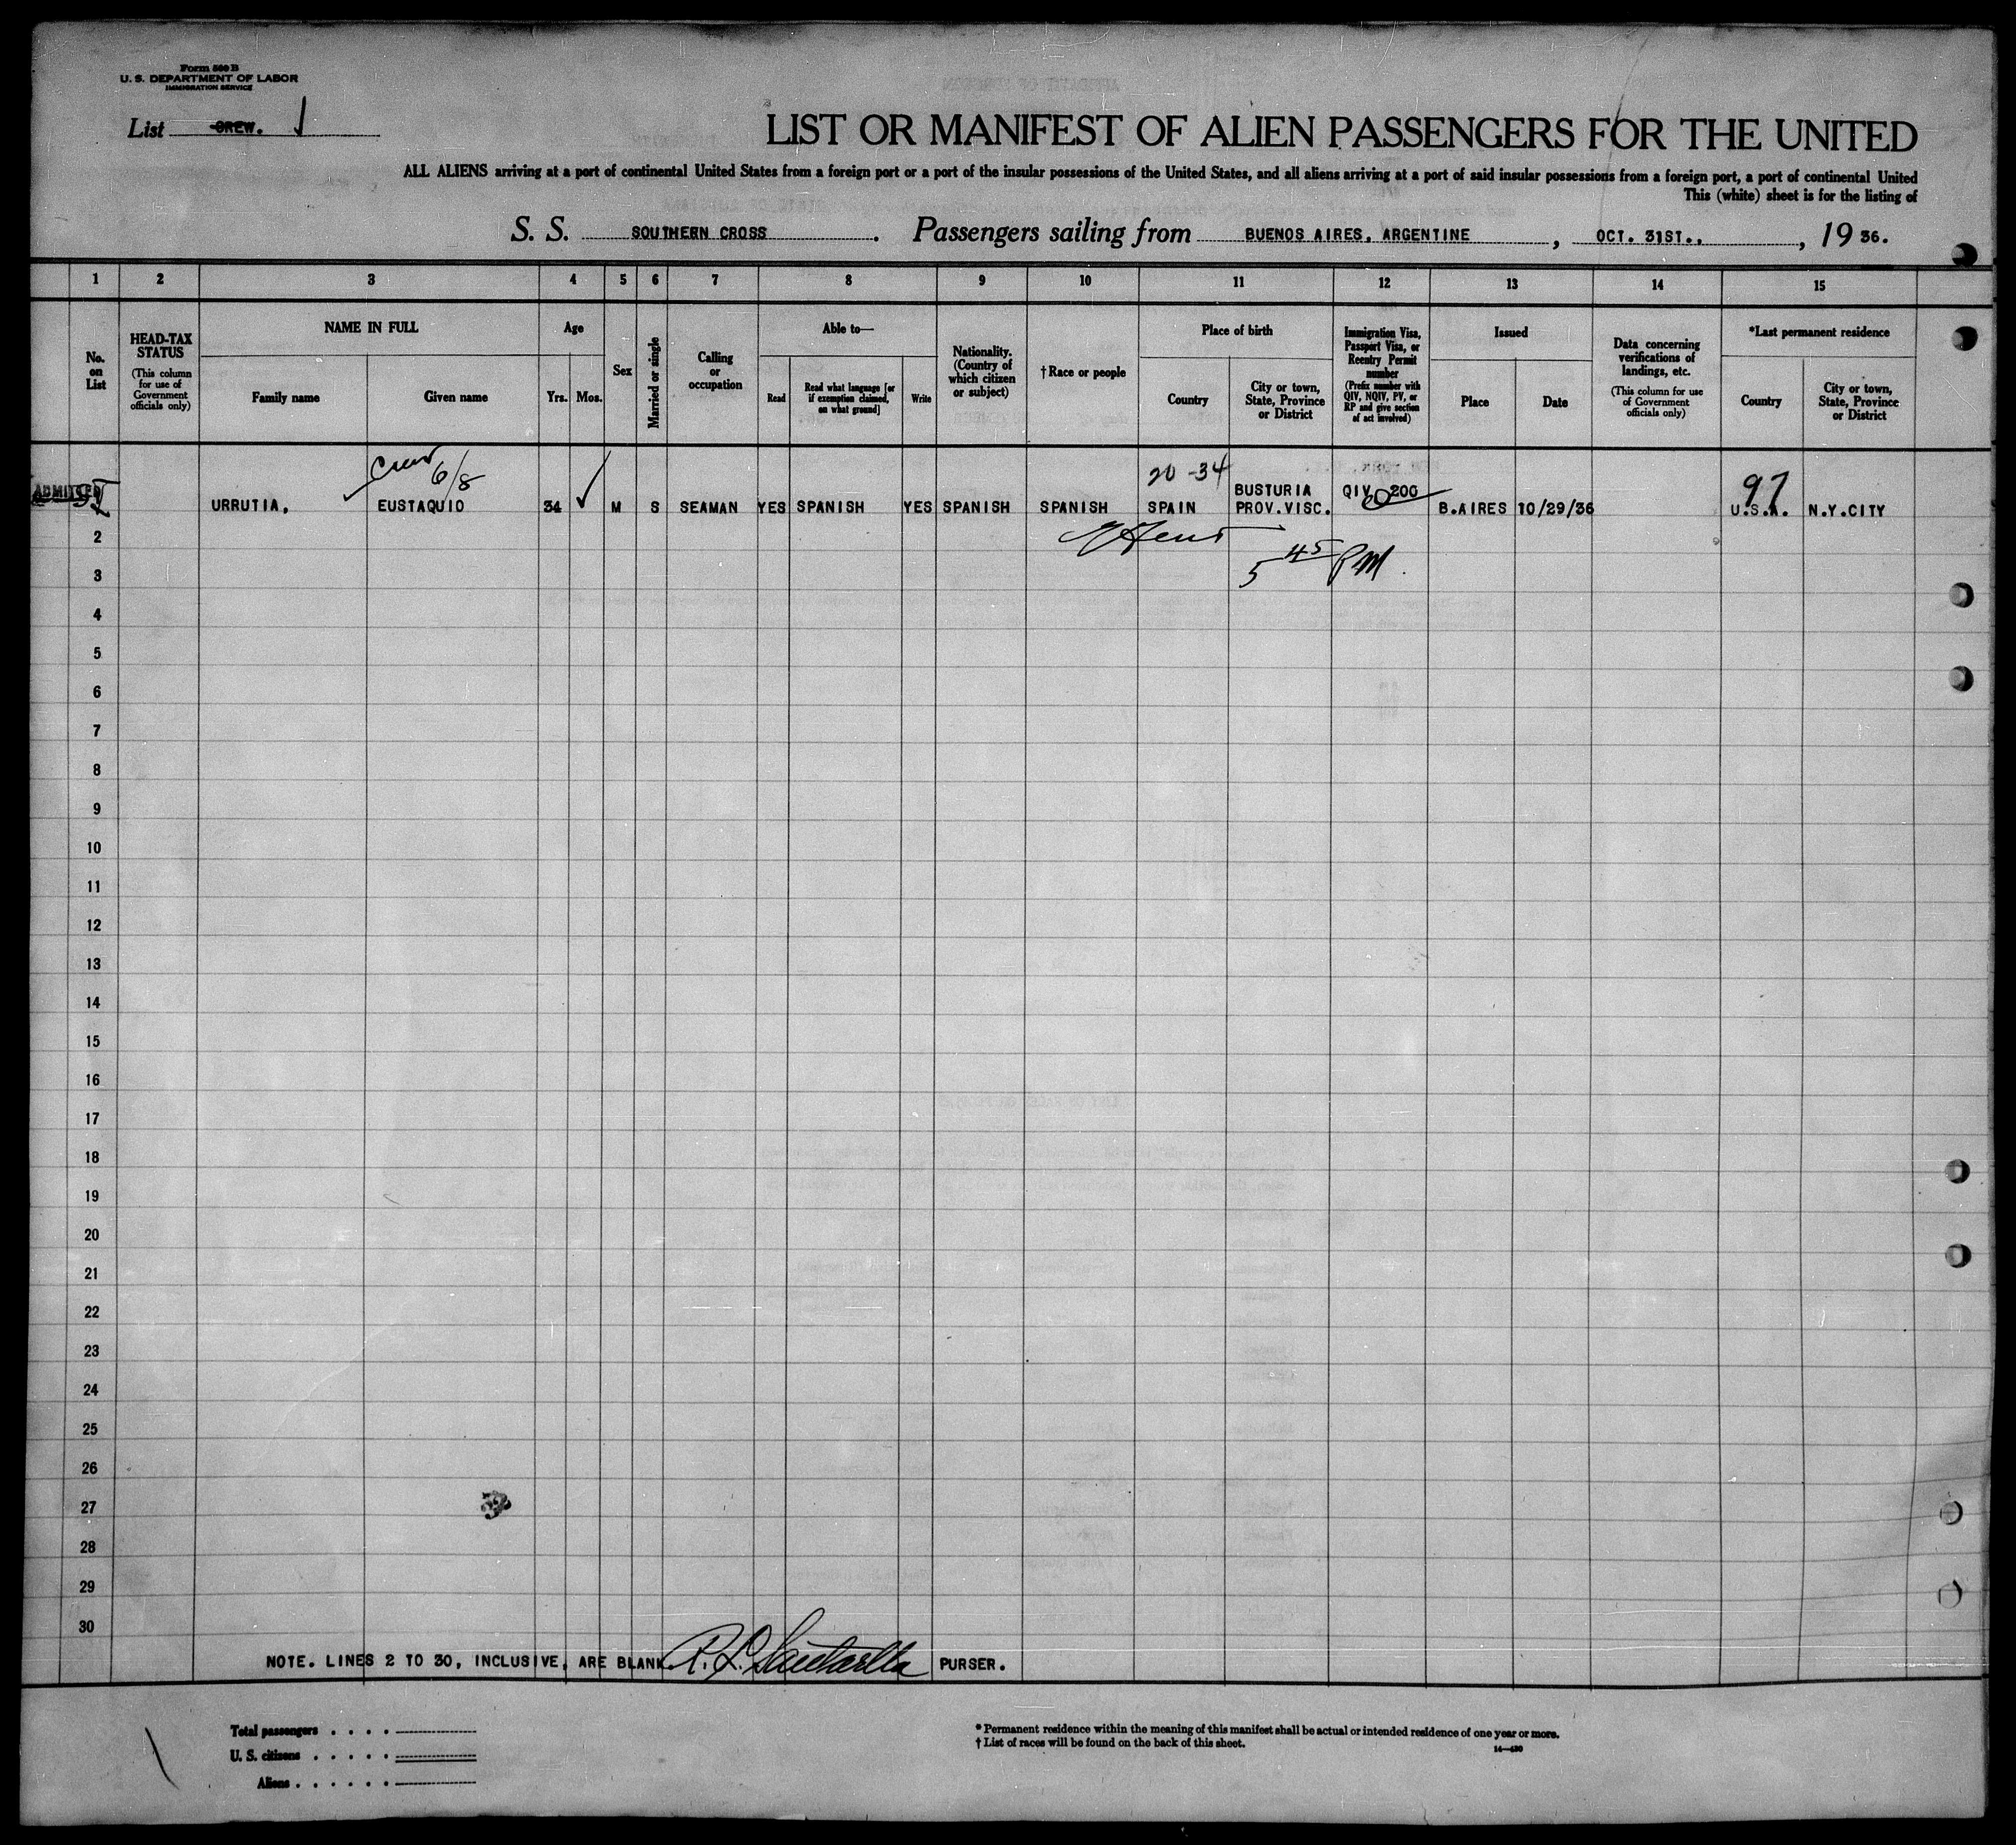 Form 500 B
U. S. DEPARTMENT OF LABOR
IMMIGRATION SERVICE
List CREW. 1
LIST OR MANIFEST OF ALIEN PASSENGERS FOR THE UNITED
ALL ALIENS arriving at a port of continental United States from a foreign port or a port of the insular possessions of the United States, and all aliens arriving at a port of said insular possessions from a foreign port, a port of continental United
This (white) sheet is for the listing of
S. S. SOUTHERN CROSS. Passengers sailing from BUENOS AIRES, ARGENTINE, OCT. 31ST., , 19 36.
1 2 3 4 5 6 7 8 9 10 11 12 13 14 15
No. on List
HEAD-TAX STATUS
(This column for use of Government officials only)
NAME IN FULL
Family name Given name
Age
Yrs. Mos.
Sex
Married or single
Calling or occupation
Able to—
Read
Read what language [or if exemption claimed, on what ground]
Write
Nationality. (Country of which citizen or subject)
† Race or people
Place of birth
Country
City or town, State, Province or District
Immigration Visa, Passport Visa, or Reentry Permit number
(Prefix number with QIV, NQIV, PV, or RP and give section of act involved)
Issued
Place Date
Data concerning verifications of landings, etc.
(This column for use of Government officials only)
*Last permanent residence
Country
City or town, State, Province or District
Crew 6/8
20 -34
97
ADMITTED
BUSTURIA QIV 200
URRUTIA, EUSTAQUIO 34 M S SEAMAN YES SPANISH YES SPANISH SPANISH SPAIN PROV.VISC. B.AIRES 10/29/36 U.S.A. N.Y.CITY
2
5 45 PM
3
4
5
6
7
8
9
10
11
12
13
14
15
16
17
18
19
20
21
22
23
24
25
26
27
28
29
30
NOTE. LINES 2 TO 30, INCLUSIVE, ARE BLANK. PURSER.
Total passengers . . . .
U. S. citizens . . . . .
Aliens . . . . . .
* Permanent residence within the meaning of this manifest shall be actual or intended residence of one year or more.
† List of races will be found on the back of this sheet.
14—430